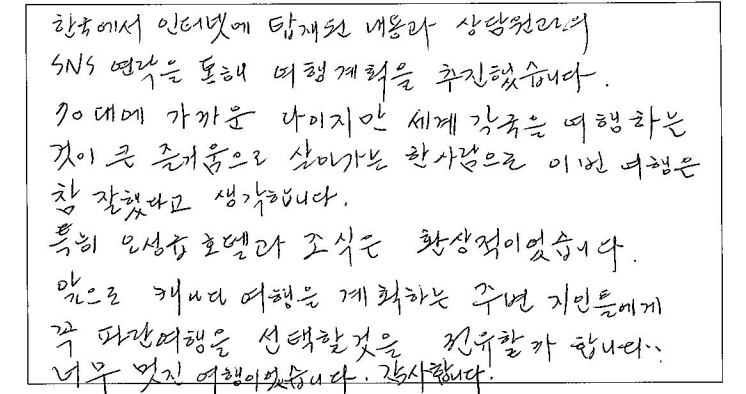 한국에서 인터넷에 탑재된 내용과 상담원과의
SNS 연락을 통해 여행계획을 추진했습니다.
70대에 가까운 나이지만 세계 각국을 여행하는
것이 큰 즐거움으로 살아가는 한사람으로 이번 여행은
참 잘했다고 생각합니다.
특히 오성급호텔과 조식은 환상적이었습니다.
앞으로 캐나다 여행을 계획하는 주변 지인들에게
꼭 파란여행을 선택할것을 전유할까 합니다..
너무 멋진 여행이었습니다. 감사합니다.